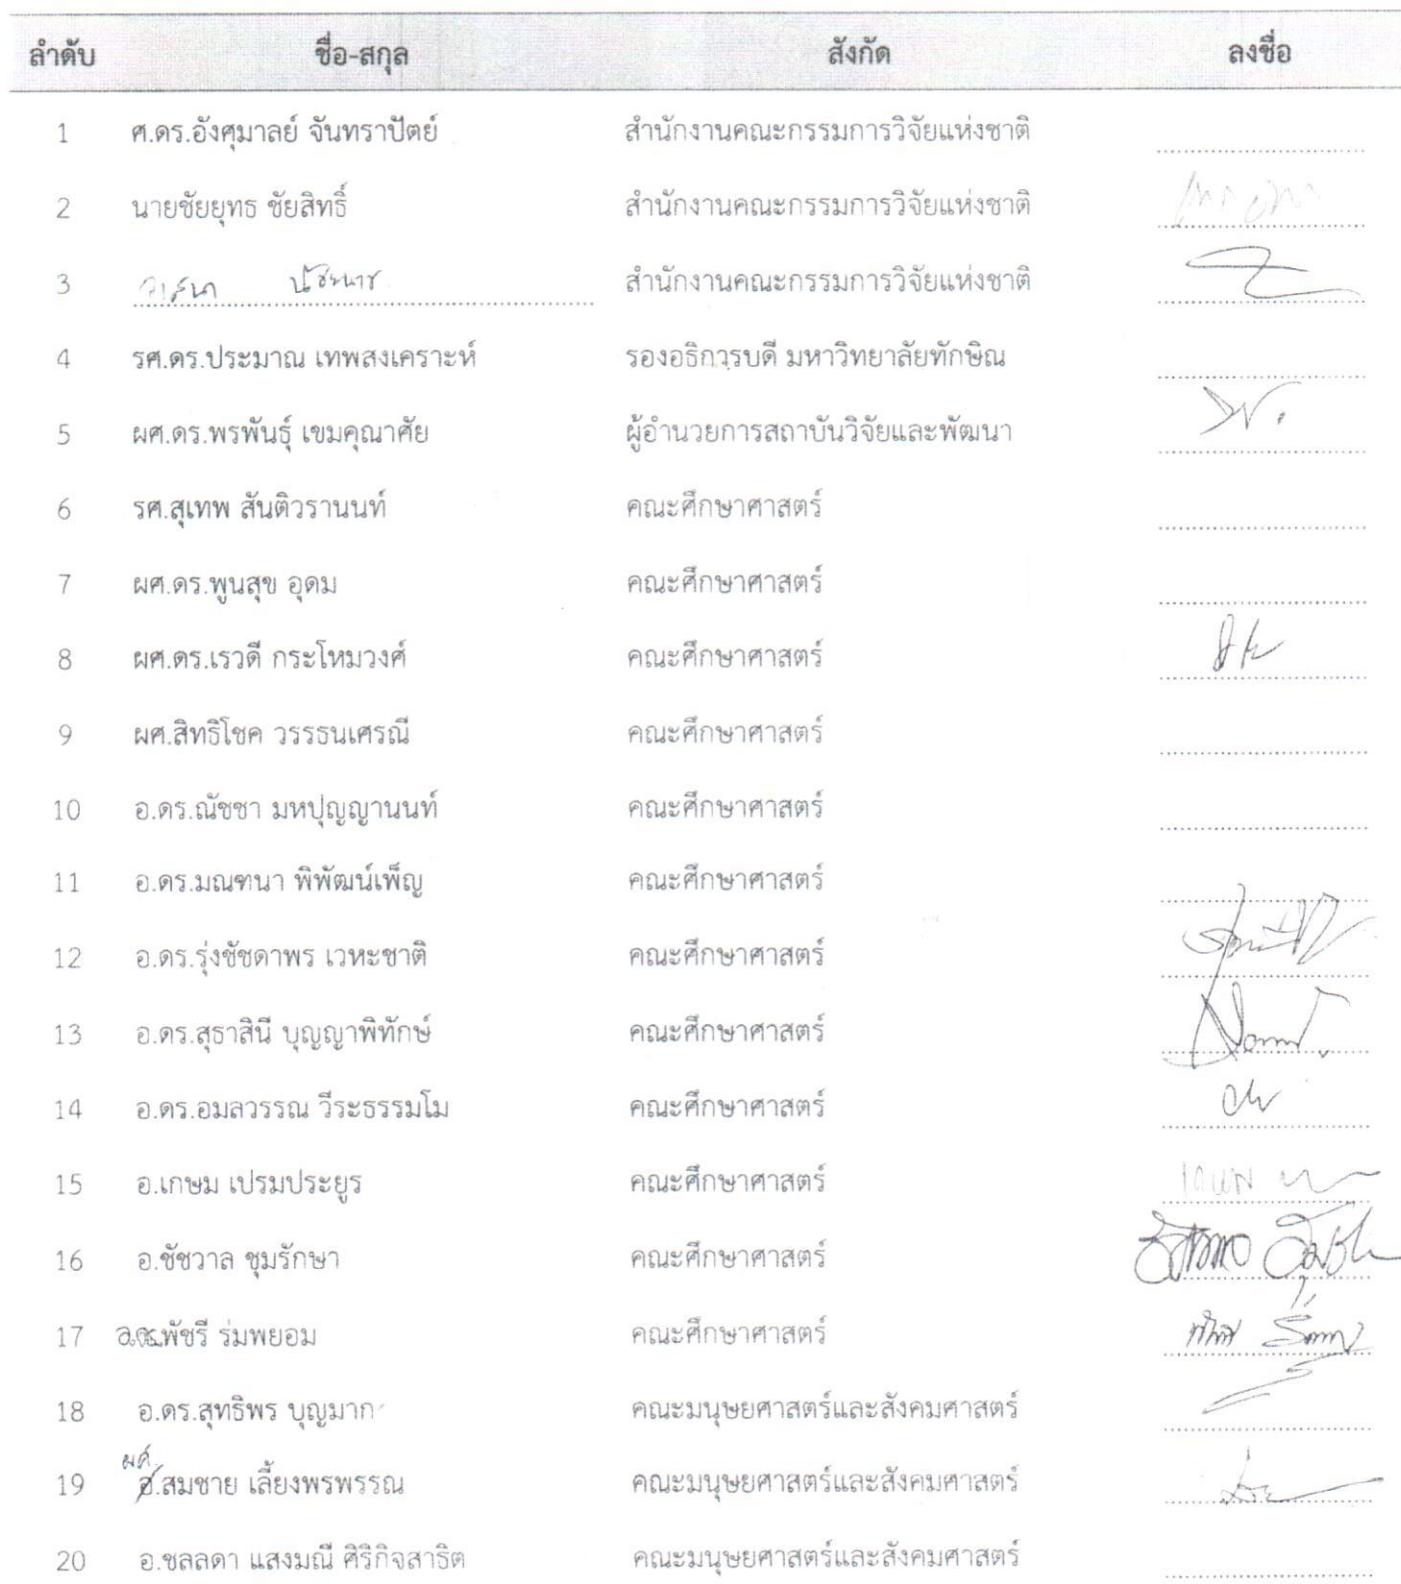 ลำดับ ชื่อ-สกุล สังกัด ลงชื่อ
1 ศ.ดร.อังศุมาลย์ จันทราปัตย์ สำนักงานคณะกรรมการวิจัยแห่งชาติ
2 นายชัยยุทธ ชัยสิทธิ์ สำนักงานคณะกรรมการวิจัยแห่งชาติ
3 สำนักงานคณะกรรมการวิจัยแห่งชาติ
4 รศ.ดร.ประมาณ เทพสงเคราะห์ รองอธิการบดี มหาวิทยาลัยทักษิณ
5 ผศ.ดร.พรพันธุ์ เขมคุณาศัย ผู้อำนวยการสถาบันวิจัยและพัฒนา
6 รศ.สุเทพ สันติวรานนท์ คณะศึกษาศาสตร์
7 ผศ.ดร.พูนสุข อุดม คณะศึกษาศาสตร์
8 ผศ.ดร.เรวดี กระโหมวงศ์ คณะศึกษาศาสตร์
9 ผศ.สิทธิโชค วรรธนเศรณี คณะศึกษาศาสตร์
10 อ.ดร.ณัชชา มหปุญญานนท์ คณะศึกษาศาสตร์
11 อ.ดร.มณฑนา พิพัฒน์เพ็ญ คณะศึกษาศาสตร์
12 อ.ดร.รุ่งชัชดาพร เวหะชาติ คณะศึกษาศาสตร์
13 อ.ดร.สุธาสินี บุญญาพิทักษ์ คณะศึกษาศาสตร์
14 อ.ดร.อมลวรรณ วีระธรรมโม คณะศึกษาศาสตร์
15 อ.เกษม เปรมประยูร คณะศึกษาศาสตร์
16 อ.ชัชวาล ชุมรักษา คณะศึกษาศาสตร์
17 อ.ดร.พัชรี ร่มพยอม คณะศึกษาศาสตร์
18 อ.ดร.สุทธิพร บุญมาก คณะมนุษยศาสตร์และสังคมศาสตร์
ผศ.
19 อ.สมชาย เลี้ยงพรพรรณ คณะมนุษยศาสตร์และสังคมศาสตร์
20 อ.ชลลดา แสงมณี ศิริกิจสาธิต คณะมนุษยศาสตร์และสังคมศาสตร์